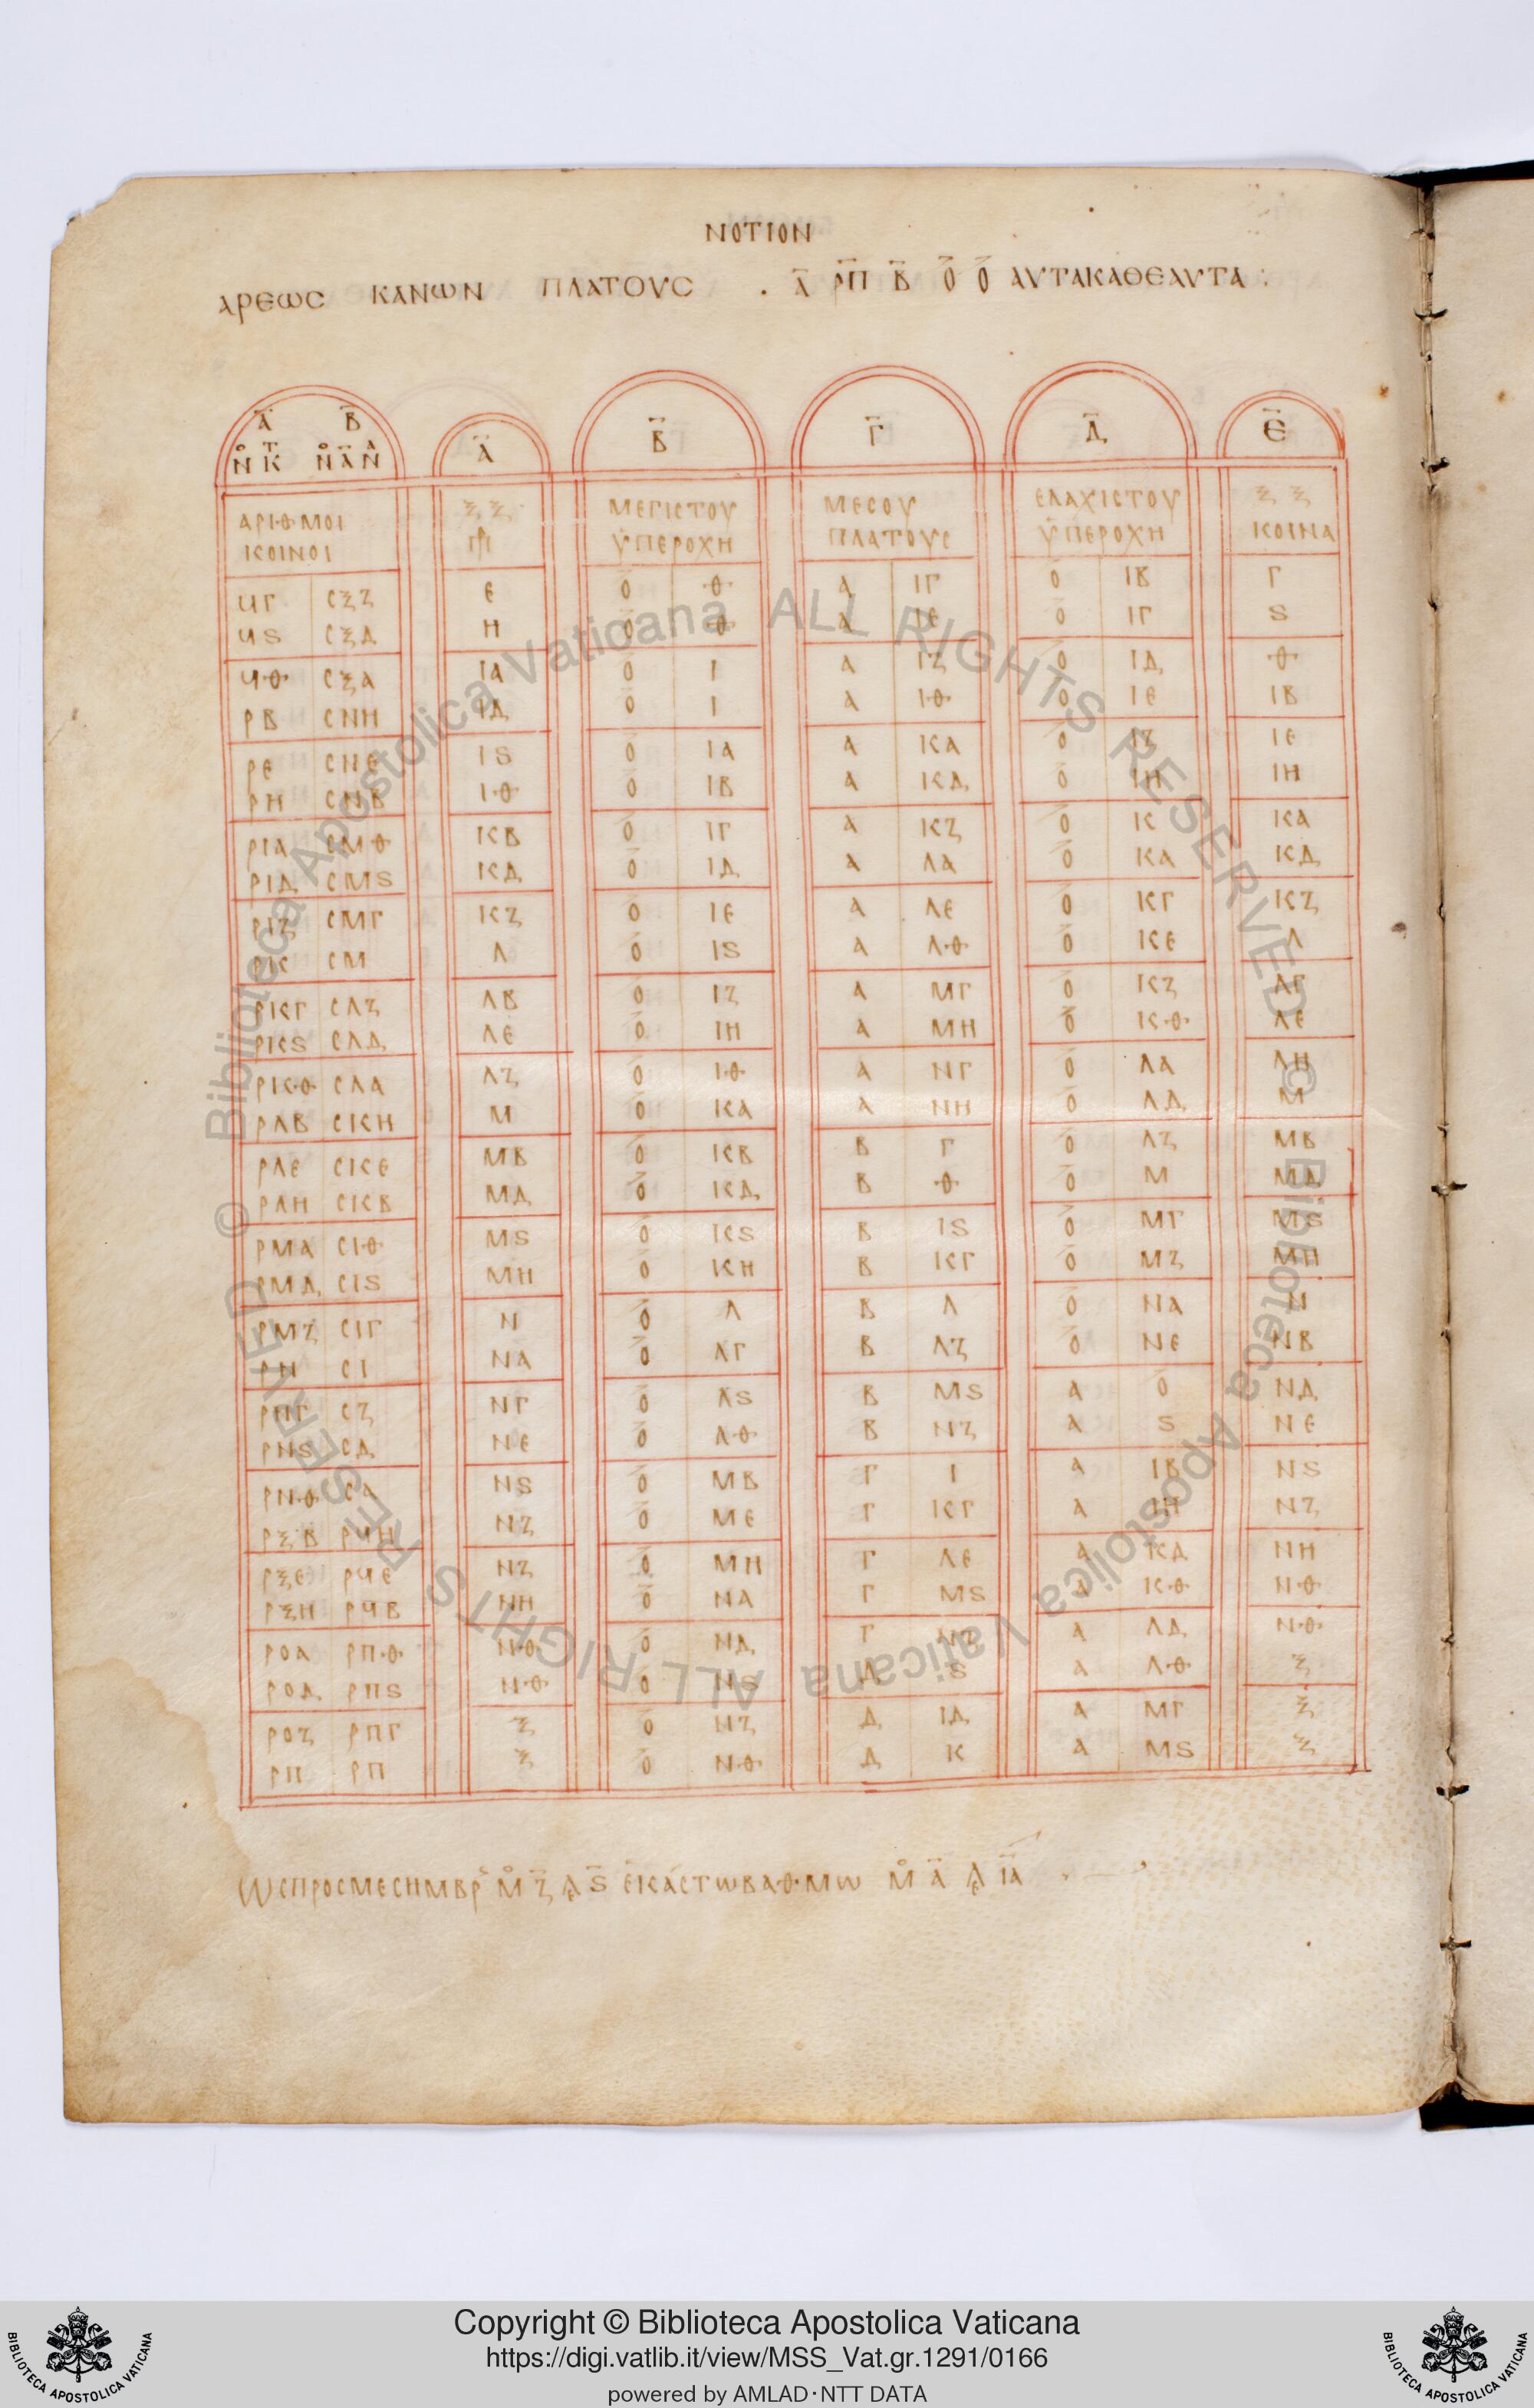 ΝΟΤΙΟΝ
ΑΡΕΩϹ ΚΑΝΩΝ ΠΛΑΤΟΥϹ . Α̅ Ρ̅Π̅ Β̅ Ο̅ Ο̅ ΑΥΤΑΚΑΘΕΑΥΤΑ :
Α̅ Β̅ Α̅ Β̅ Γ̅ Δ̅ Ε̅
ΑΡΙΘΜΟΙ ΞΞ ΜΕΓΙϹΤΟΥ ΜΕϹΟΥ ΕΛΑΧΙϹΤΟΥ ΞΞ
ΚΟΙΝΟΙ ΥΠΕΡΟΧΗ ΠΛΑΤΟΥϹ ΥΠΕΡΟΧΗ ΚΟΙΝΑ
ϤΓ ϹΞΖ Ε Ο̅ Θ Α ΙΓ Ο̅ ΙΒ Γ
ϤϚ ϹΞΔ Η Ο̅ Θ Α ΙΕ Ο̅ ΙΓ Ϛ
ϤΘ ϹΞΑ ΙΑ Ο̅ Ι Α ΙΖ Ο̅ ΙΔ Θ
ΡΒ ϹΝΗ ΙΔ Ο̅ Ι Α ΙΘ Ο̅ ΙΕ ΙΒ
ΡΕ ϹΝΕ ΙϚ Ο̅ ΙΑ Α ΚΑ Ο̅ ΙΖ ΙΕ
ΡΗ ϹΝΒ ΙΘ Ο̅ ΙΒ Α ΚΔ Ο̅ ΙΗ ΙΗ
ΡΙΑ ϹΜΘ ΚΒ Ο̅ ΙΓ Α ΚΖ Ο̅ Κ ΚΑ
ΡΙΔ ϹΜϚ ΚΔ Ο̅ ΙΔ Α ΛΑ Ο̅ ΚΑ ΚΔ
ΡΙΖ ϹΜΓ ΚΖ Ο̅ ΙΕ Α ΛΕ Ο̅ ΚΓ ΚΖ
ΡΚ ϹΜ Λ Ο̅ ΙϚ Α ΛΘ Ο̅ ΚΕ Λ
ΡΚΓ ϹΛΖ ΛΒ Ο̅ ΙΖ Α ΜΓ Ο̅ ΚΖ ΛΓ
ΡΚϚ ϹΛΔ ΛΕ Ο̅ ΙΗ Α ΜΗ Ο̅ ΚΘ ΛΕ
ΡΚΘ ϹΛΑ ΛΖ Ο̅ ΙΘ Α ΝΓ Ο̅ ΛΑ ΛΗ
ΡΛΒ ϹΚΗ Μ Ο̅ ΚΑ Α ΝΗ Ο̅ ΛΔ Μ
ΡΛΕ ϹΚΕ ΜΒ Ο̅ ΚΒ Β Γ Ο̅ ΛΖ ΜΒ
ΡΛΗ ϹΚΒ ΜΔ Ο̅ ΚΔ Β Θ Ο̅ Μ ΜΔ
ΡΜΑ ϹΙΘ ΜϚ Ο̅ ΚϚ Β ΙϚ Ο̅ ΜΓ ΜϚ
ΡΜΔ ϹΙϚ ΜΗ Ο̅ ΚΗ Β ΚΓ Ο̅ ΜΖ ΜΗ
ΡΜΖ ϹΙΓ Ν Ο̅ Λ Β Λ Ο̅ ΝΑ Ν
ΡΝ ϹΙ ΝΑ Ο̅ ΛΓ Β ΛΖ Ο̅ ΝΕ ΝΒ
ΡΝΓ ϹΖ ΝΓ Ο̅ ΛϚ Β ΜϚ Α Ο̅ ΝΔ
ΡΝϚ ϹΔ ΝΕ Ο̅ ΛΘ Β ΝΖ Α Ϛ ΝΕ
ΡΝΘ ϹΑ ΝϚ Ο̅ ΜΒ Γ Ι Α ΙΒ ΝϚ
ΡΞΒ ΡϤΗ ΝΖ Ο̅ ΜΕ Γ ΚΓ Α ΙΗ ΝΖ
ΡΞΕ ΡϤΕ ΝΖ Ο̅ ΜΗ Γ ΛΕ Α ΚΔ ΝΗ
ΡΞΗ ΡϤΒ ΝΗ Ο̅ ΝΑ Γ ΜϚ Α ΚΘ ΝΘ
ΡΟΑ ΡΠΘ ΝΘ Ο̅ ΝΔ Γ ΝΖ Α ΛΔ ΝΘ
ΡΟΔ ΡΠϚ ΝΘ Ο̅ ΝϚ Δ Ϛ Α ΛΘ Ξ
ΡΟΖ ΡΠΓ Ξ Ο̅ ΝΖ Δ ΙΔ Α ΜΓ Ξ
ΡΠ ΡΠ Ξ Ο̅ ΝΘ Δ Κ Α ΜϚ Ξ
ΩϹΠΡΟϹΜΕϹΗΜΒΡ Μ Ζ̅ Ϛ̅ ΕΚΑϹΤΩΒΑΘΜΩ Μ Α̅ ΙΑ̅
© Biblioteca Apostolica Vaticana ALL RIGHTS RESERVED
© Biblioteca Apostolica Vaticana ALL RIGHTS RESERVED
BIBLIOTECA APOSTOLICA VATICANA
Copyright © Biblioteca Apostolica Vaticana
https://digi.vatlib.it/view/MSS_Vat.gr.1291/0166
powered by AMLAD·NTT DATA
BIBLIOTECA APOSTOLICA VATICANA